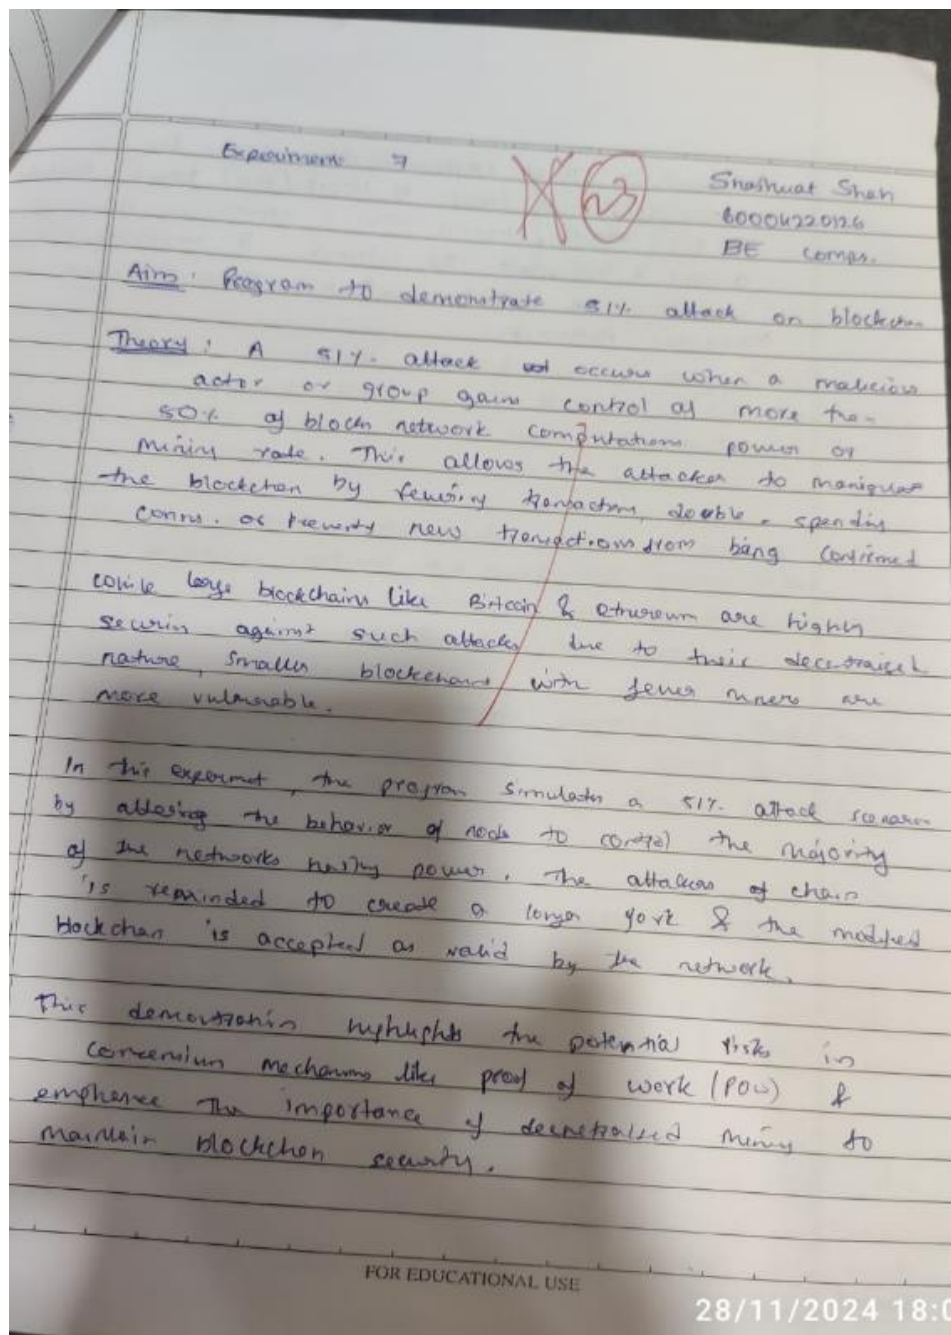 Experiment 7
23
Shashwat Shah
60004220126
BE comps.
Aim: Program to demonstrate 51% attack on blockchain
Theory: A 51% attack occurs when a malicious
actor or group gains control of more than
50% of network computation power or
mining rate. This allows the attacker to
the blockchain by transaction, double-spending
coins. or new transactions from being confirmed
large blockchains like Bitcoin & ethereum are highly
against such attacks due to their
nature, smaller blockchains with fewer miners are
more vulnerable.
In this experiment, the program simulates a 51% attack scenario
by the behavior of node to control the majority
of the networks power. The attackers of chain
is reminded to create a longer fork & the modified
blockchain is accepted as valid by the network.
This demonstration highlights the potential risks in
mechanisms like proof of work (POW) &
the importance of mining to
maintain blockchain security.
FOR EDUCATIONAL USE
28/11/2024 18:0